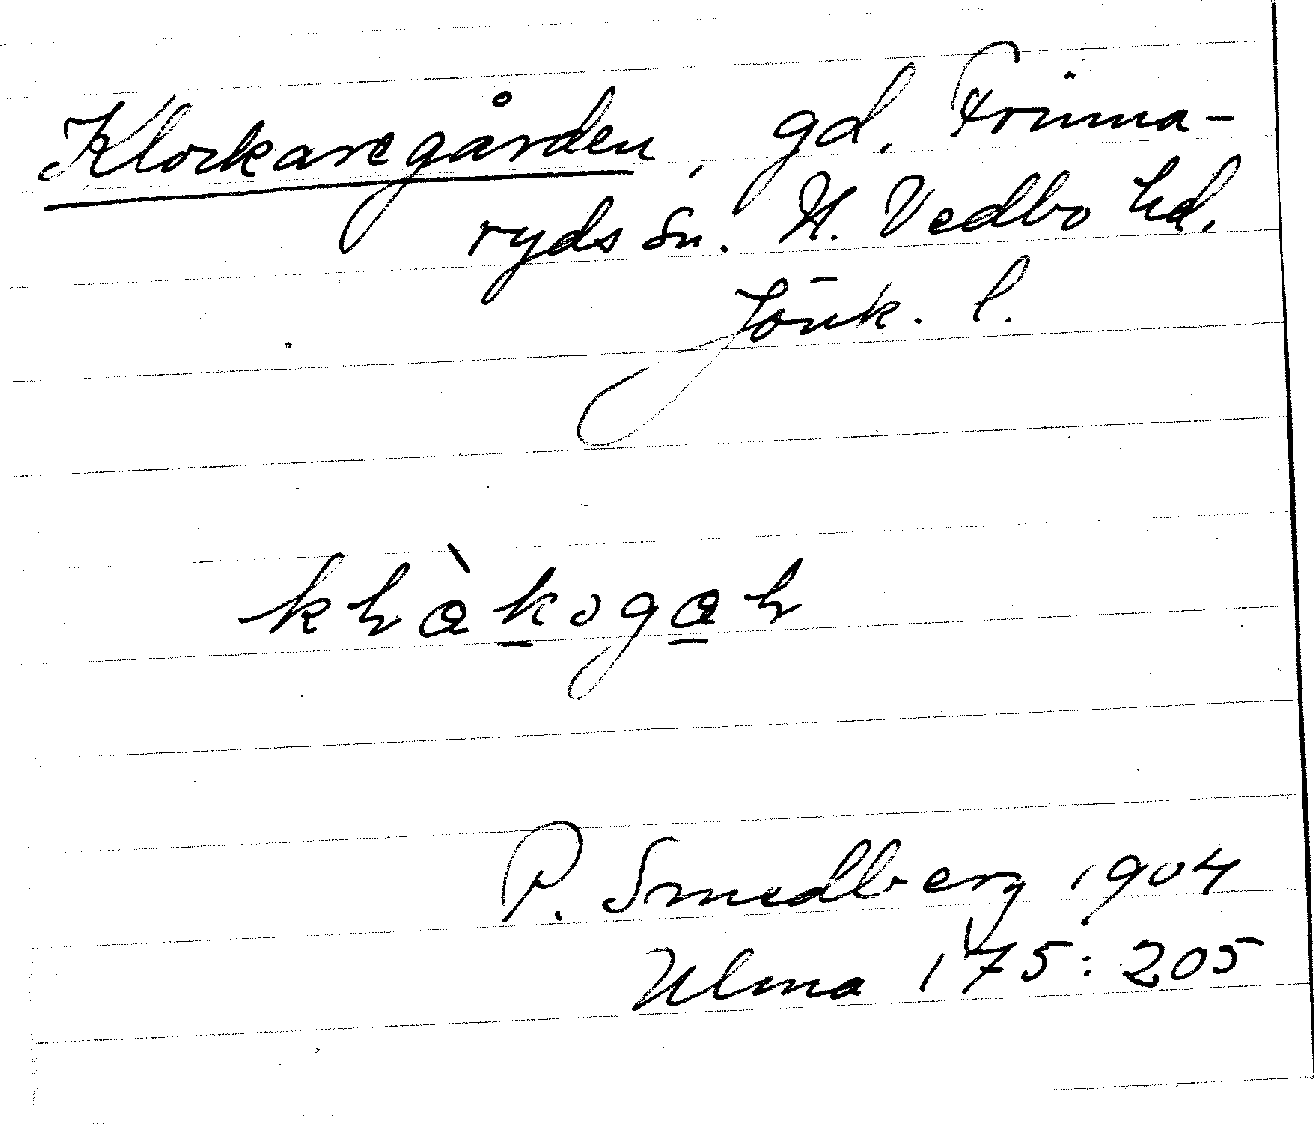 Klockaregården, gd. Frinna-
ryds sn. N. Vedbo hd.
Jönk. l.
P. Smedberg 1904
Ulma 175:205